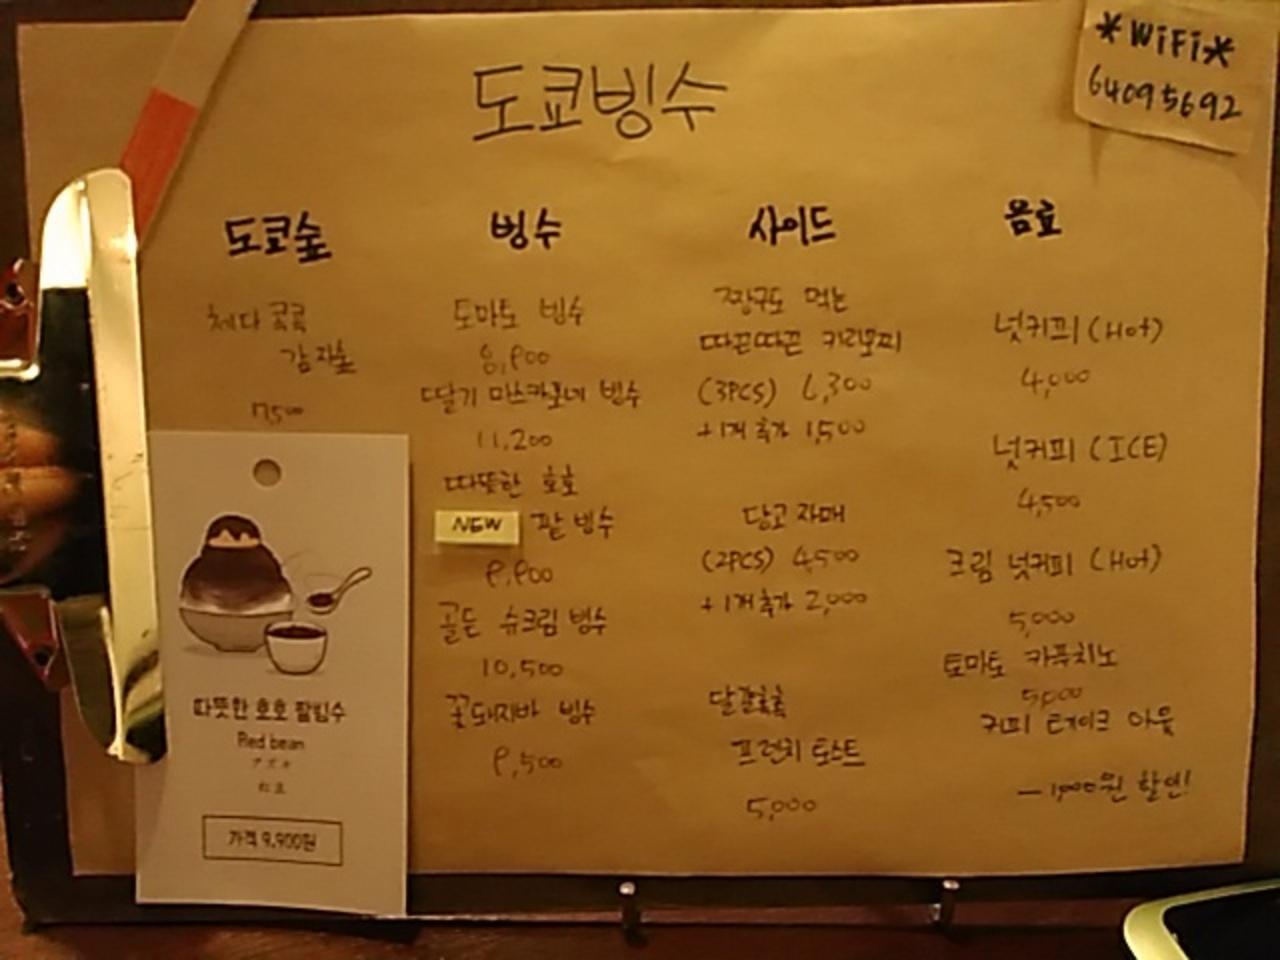 도쿄빙수
*WiFi*
64095692
도쿄숲
체다 콕콕
감자숲
7,500
빙수
도마토 빙수
8,900
딸기 마스카포네 빙수
11,200
따뜻한 호호
NEW 팥 빙수
9,900
골든 슈크림 빙수
10,500
꽃돼지바 빙수
9,500
사이드
짱구도 먹는
따끈따끈 키리모찌
(3PCS) 6,300
+1개 추가 1,500
당고 자매
(2PCS) 4,500
+1개 추가 2,000
달걀촉촉
프렌치 토스트
5,000
음료
넛커피 (Hot)
4,000
넛커피 (ICE)
4,500
크림 넛커피 (Hot)
5,000
토마토 카푸치노
5,000
커피 테이크 아웃
-1,000원 할인!
따뜻한 호호 팥빙수
Red bean
アズキ
红豆
가격 9,900원